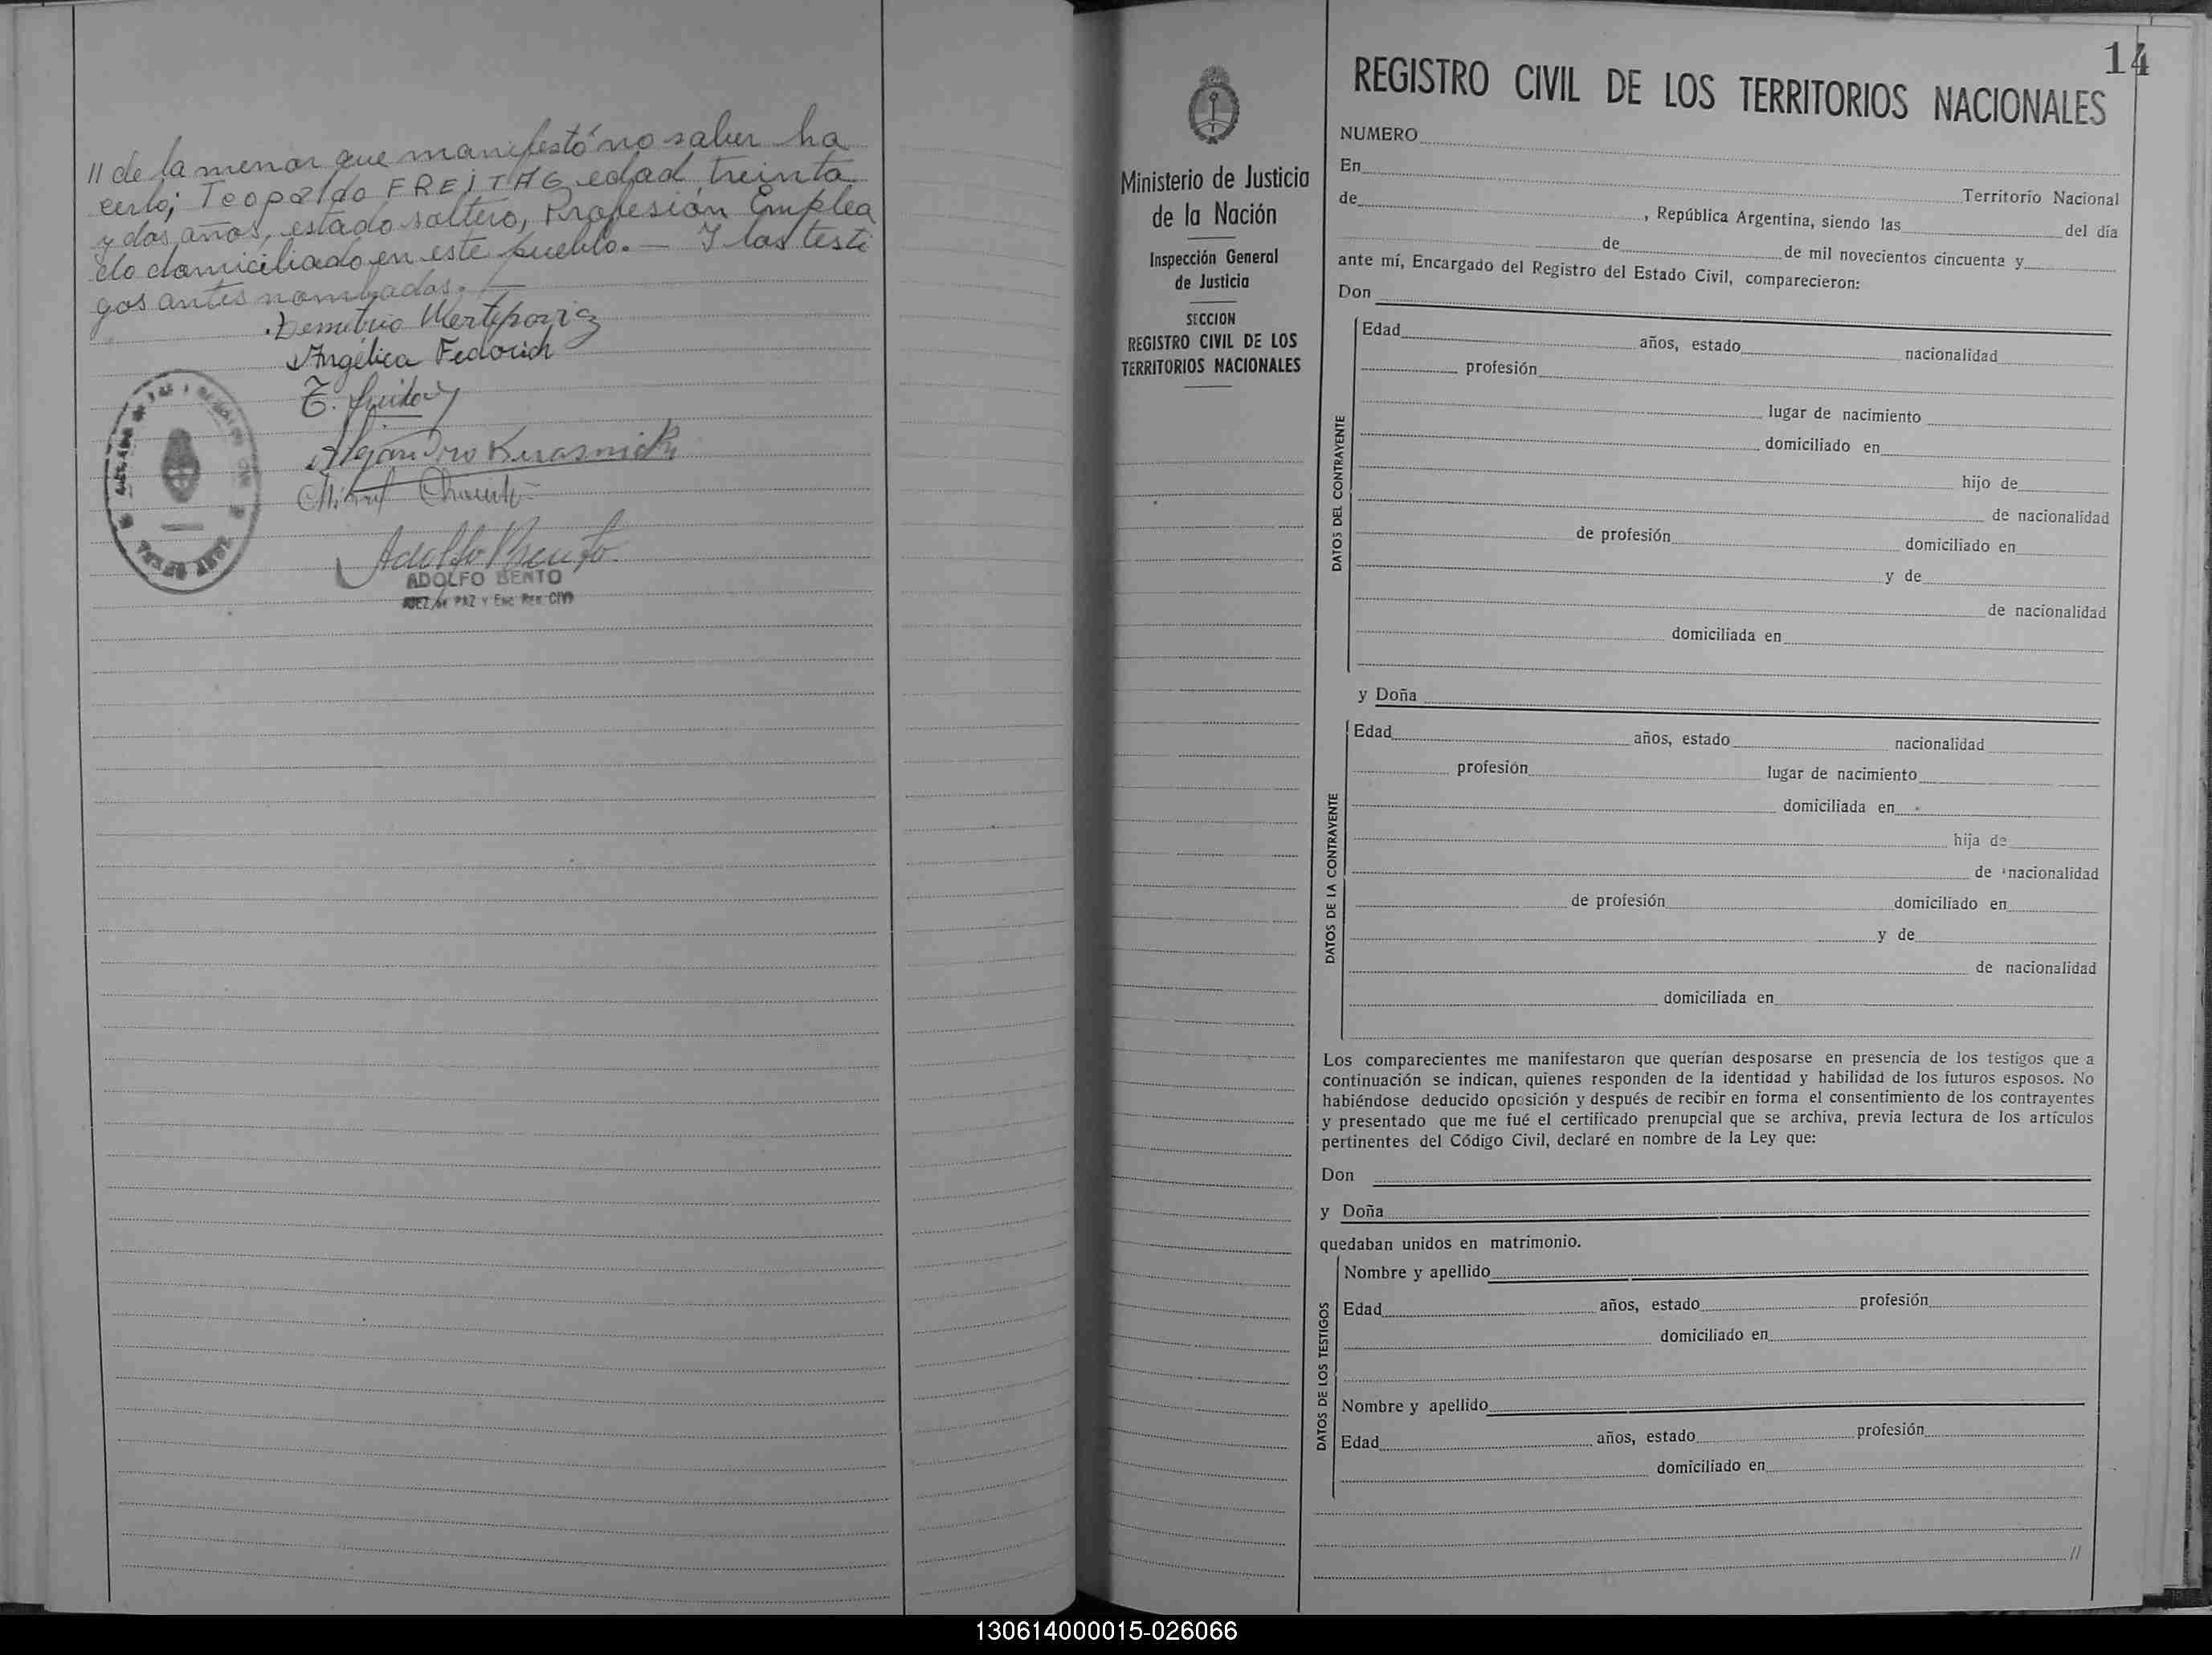 // de la menor que manifestó no saber ha
cerlo; Teopoldo FREITAG edad treinta
y dos años, estado soltero, Profesión Emplea
do domiciliado en este pueblo. — Y los testi
gos antes nombrados. —
Demetrio
Angélica Fedorich
Alejandro Krasnicki
Adolfo Bento
ADOLFO BENTO
JUEZ de PAZ y Enc. Reg. CIVIL
14
Ministerio de Justicia
de la Nación
Inspección General
de Justicia
SECCION
REGISTRO CIVIL DE LOS
TERRITORIOS NACIONALES
REGISTRO CIVIL DE LOS TERRITORIOS NACIONALES
NUMERO
En
Territorio Nacional
de , República Argentina, siendo las del día
de de mil novecientos cincuenta y
ante mí, Encargado del Registro del Estado Civil, comparecieron:
Don
DATOS DEL CONTRAYENTE
Edad años, estado nacionalidad
profesión
lugar de nacimiento
domiciliado en
hijo de
de nacionalidad
de profesión domiciliado en
y de
de nacionalidad
domiciliada en
y Doña
DATOS DE LA CONTRAYENTE
Edad años, estado nacionalidad
profesión lugar de nacimiento
domiciliada en
hija de
de nacionalidad
de profesión domiciliado en
y de
de nacionalidad
domiciliada en
Los comparecientes me manifestaron que querían desposarse en presencia de los testigos que a
continuación se indican, quienes responden de la identidad y habilidad de los futuros esposos. No
habiéndose deducido oposición y después de recibir en forma el consentimiento de los contrayentes
y presentado que me fué el certificado prenupcial que se archiva, previa lectura de los artículos
pertinentes del Código Civil, declaré en nombre de la Ley que:
Don
y Doña
quedaban unidos en matrimonio.
DATOS DE LOS TESTIGOS
Nombre y apellido
Edad años, estado profesión
domiciliado en
Nombre y apellido
Edad años, estado profesión
domiciliado en
//
130614000015-026066